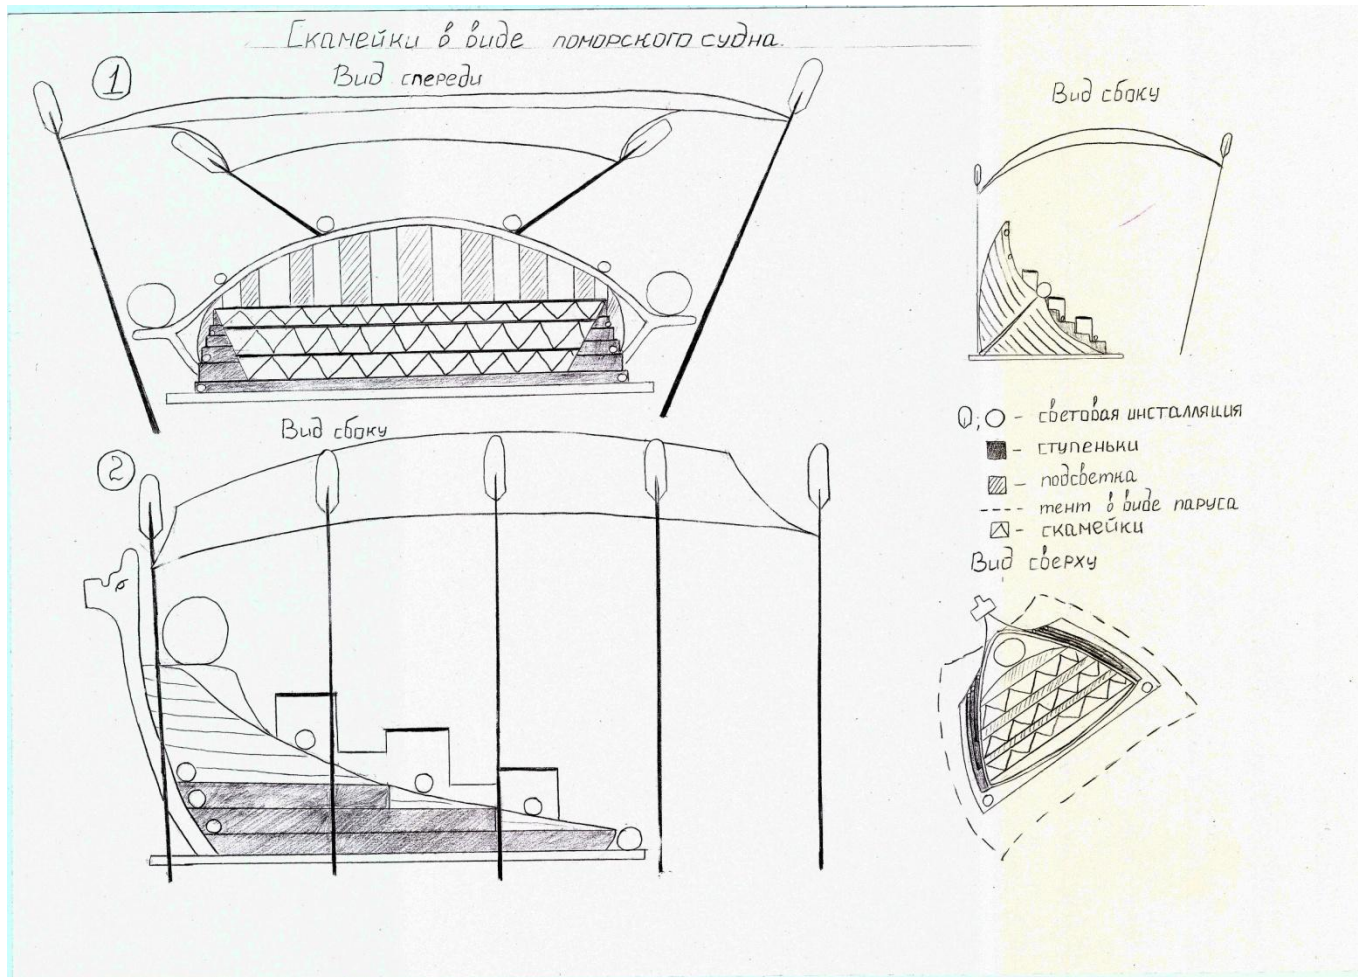 Скамейки в виде поморского судна.
1
Вид спереди
Вид сбоку
O; O - световая инсталляция
- ступеньки
- подсветка
---- тент в виде паруса
- скамейки
2
Вид сбоку
Вид сверху